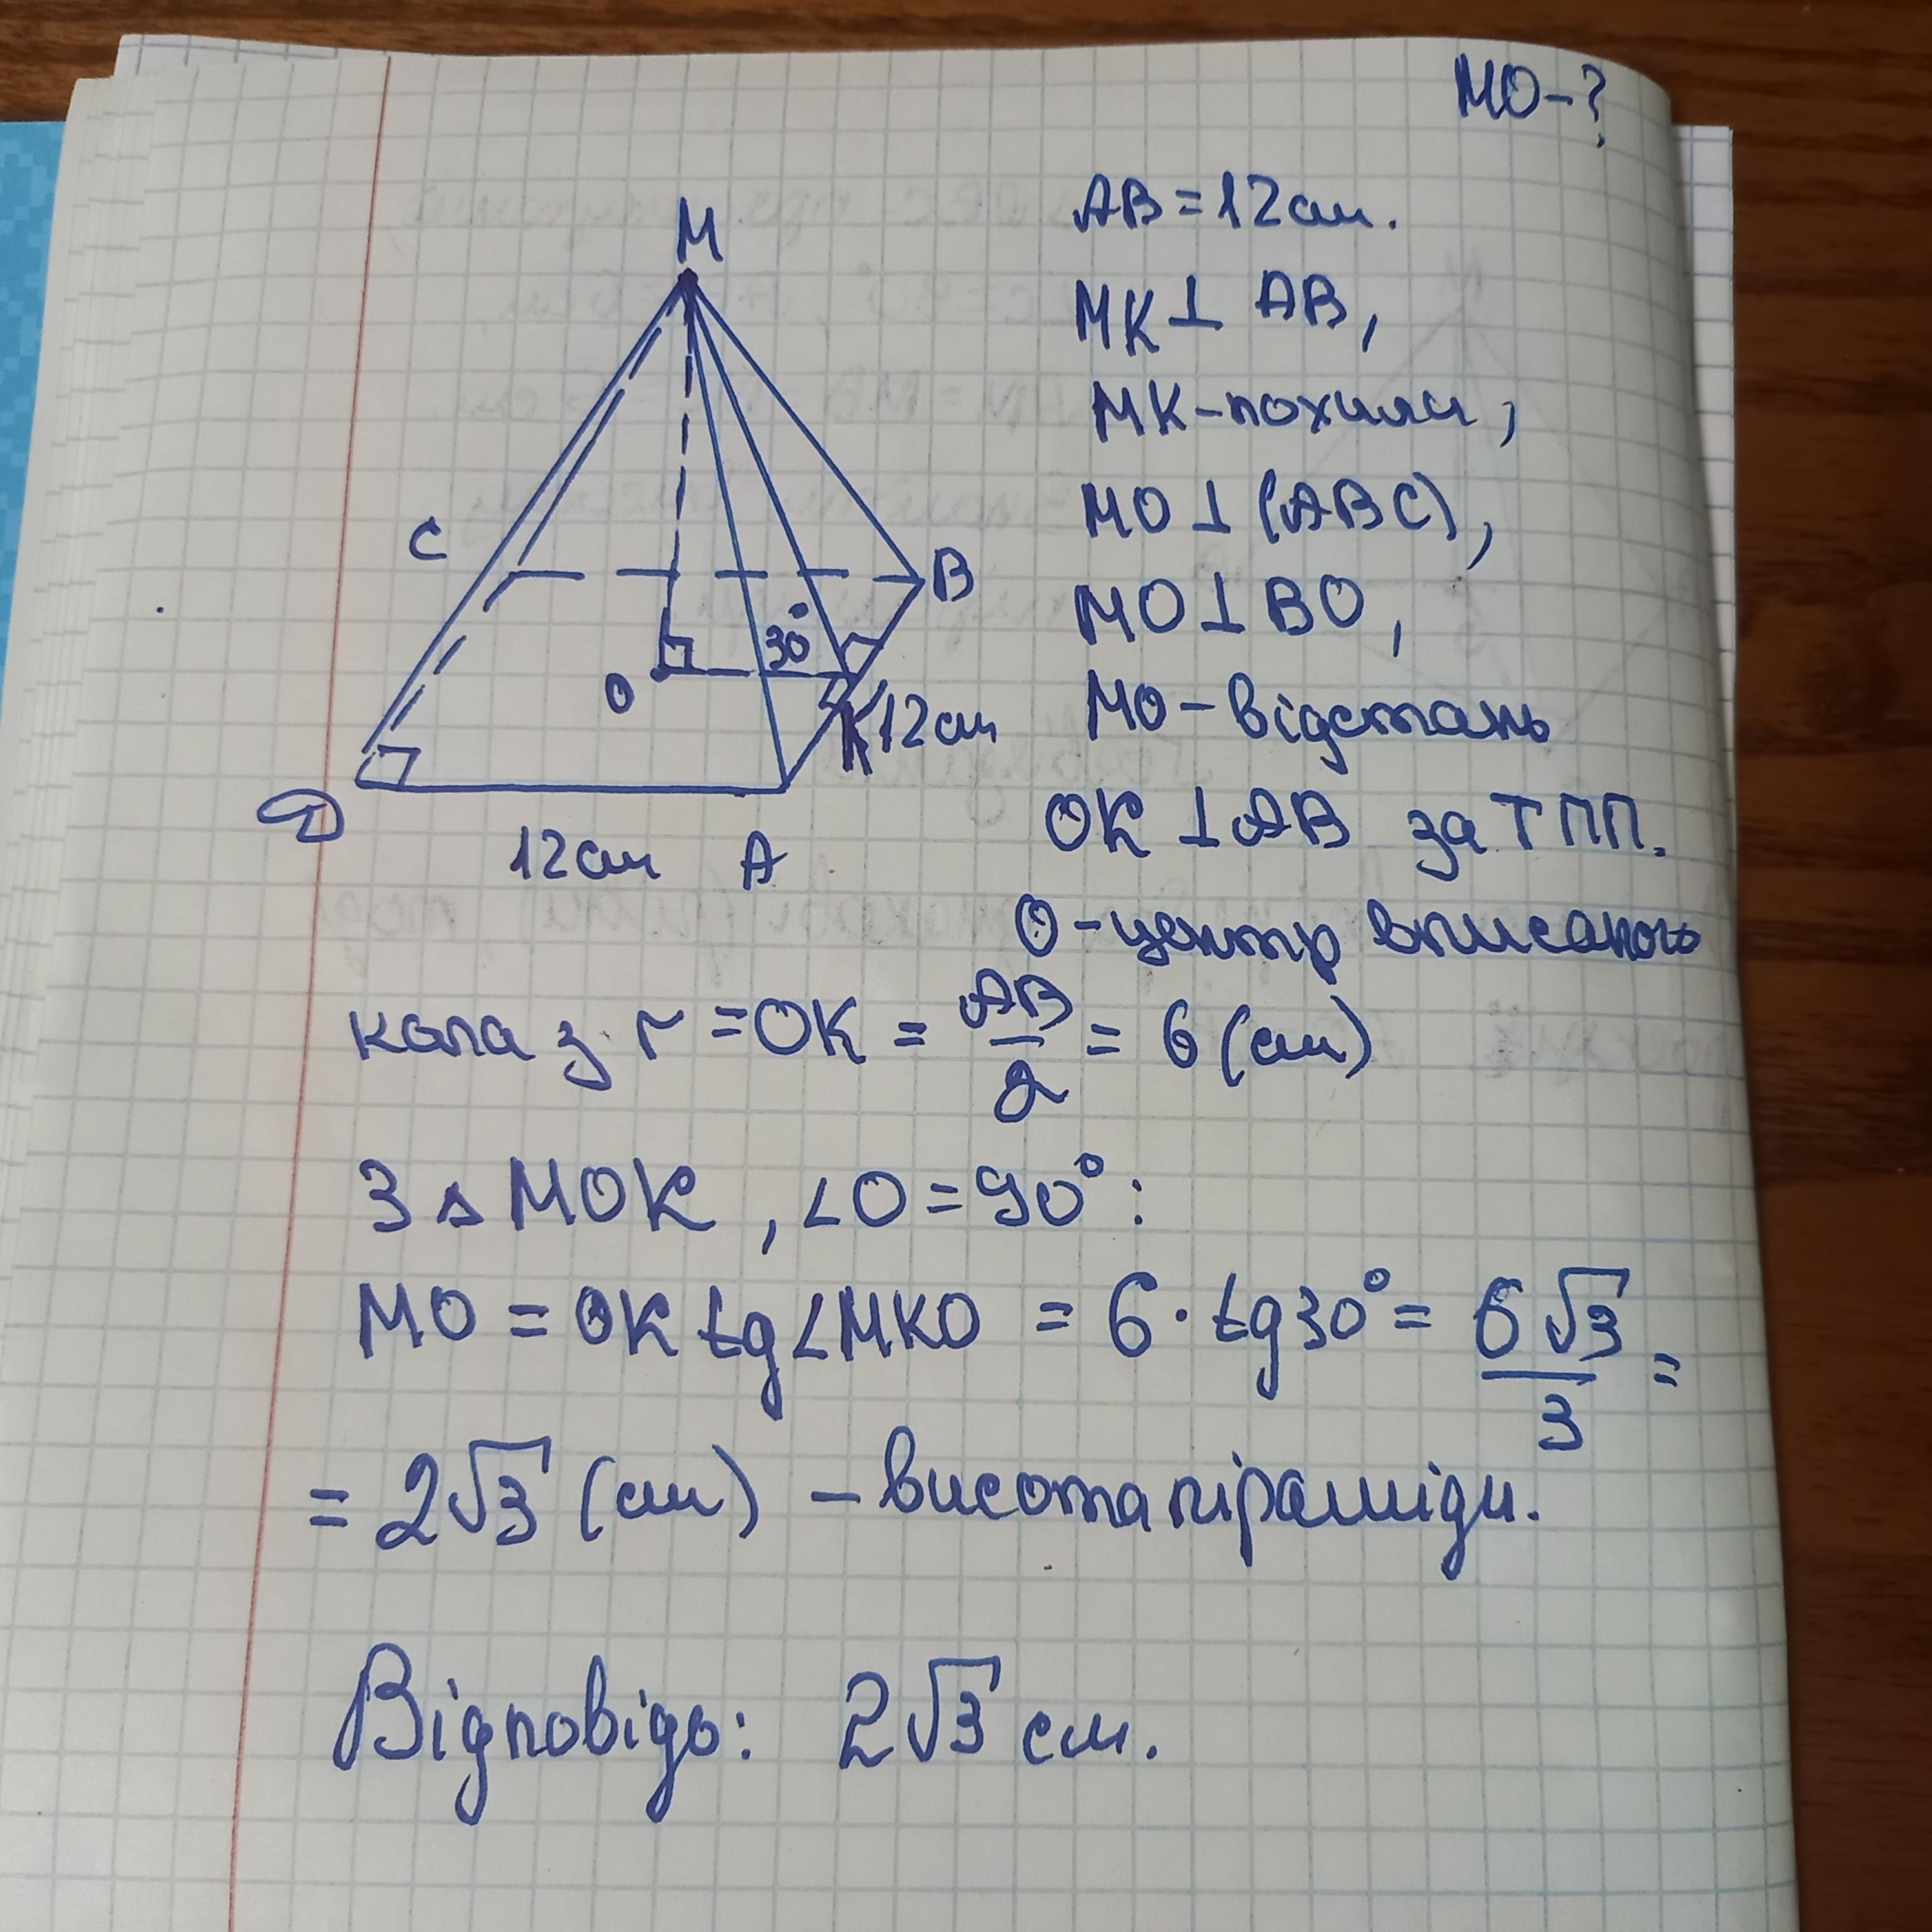 MO-?
M
C
B
30°
O
K
12см
D
12см A
AB=12см.
MK⊥ AB,
MK-похили,
MO⊥(ABC),
MO⊥BO,
MO-відстань
OK⊥AB за ТПП.
O-центр вписаного
кола з r=OK = AB/2 = 6 (см)
З △MOK, ∠O=90°:
MO = OK tg∠MKO = 6·tg30°= 6√3/3 =
= 2√3 (см) - висота піраміди.
Відповідь: 2√3 см.